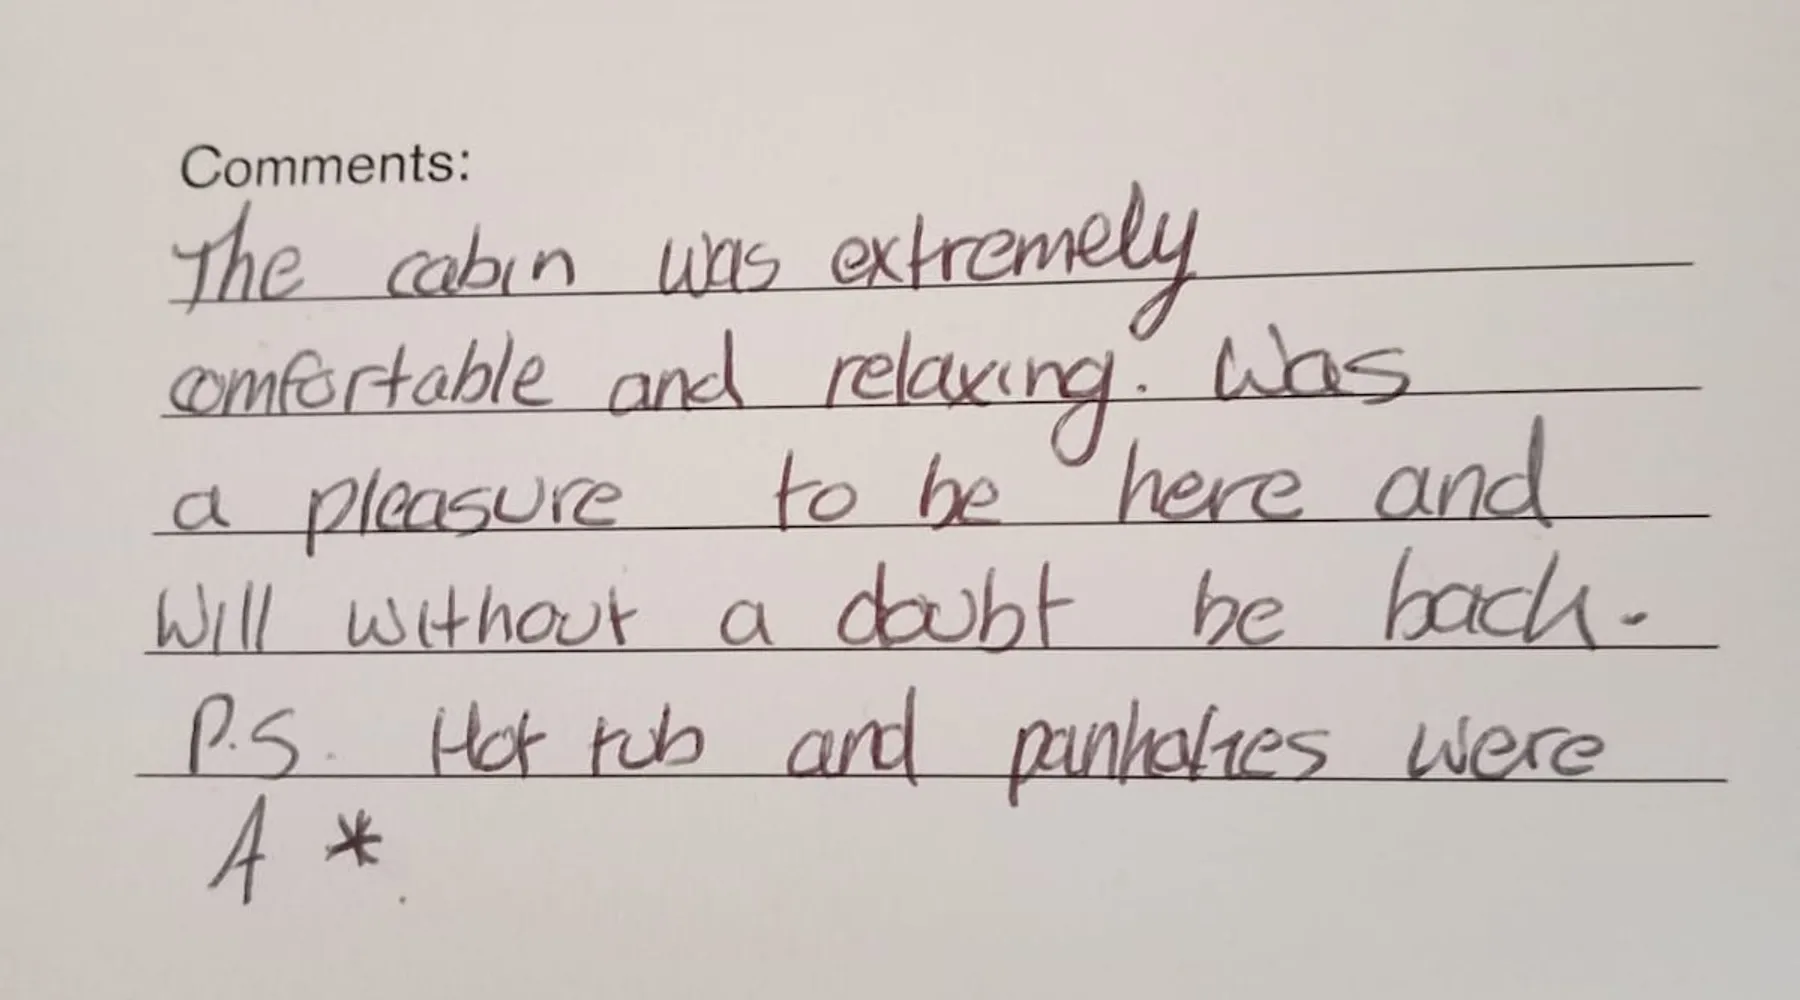 Comments:
The cabin was extremely
comfortable and relaxing. Was
a pleasure to be here and
Will without a doubt be back.
P.S. Hot tub and were
A *.